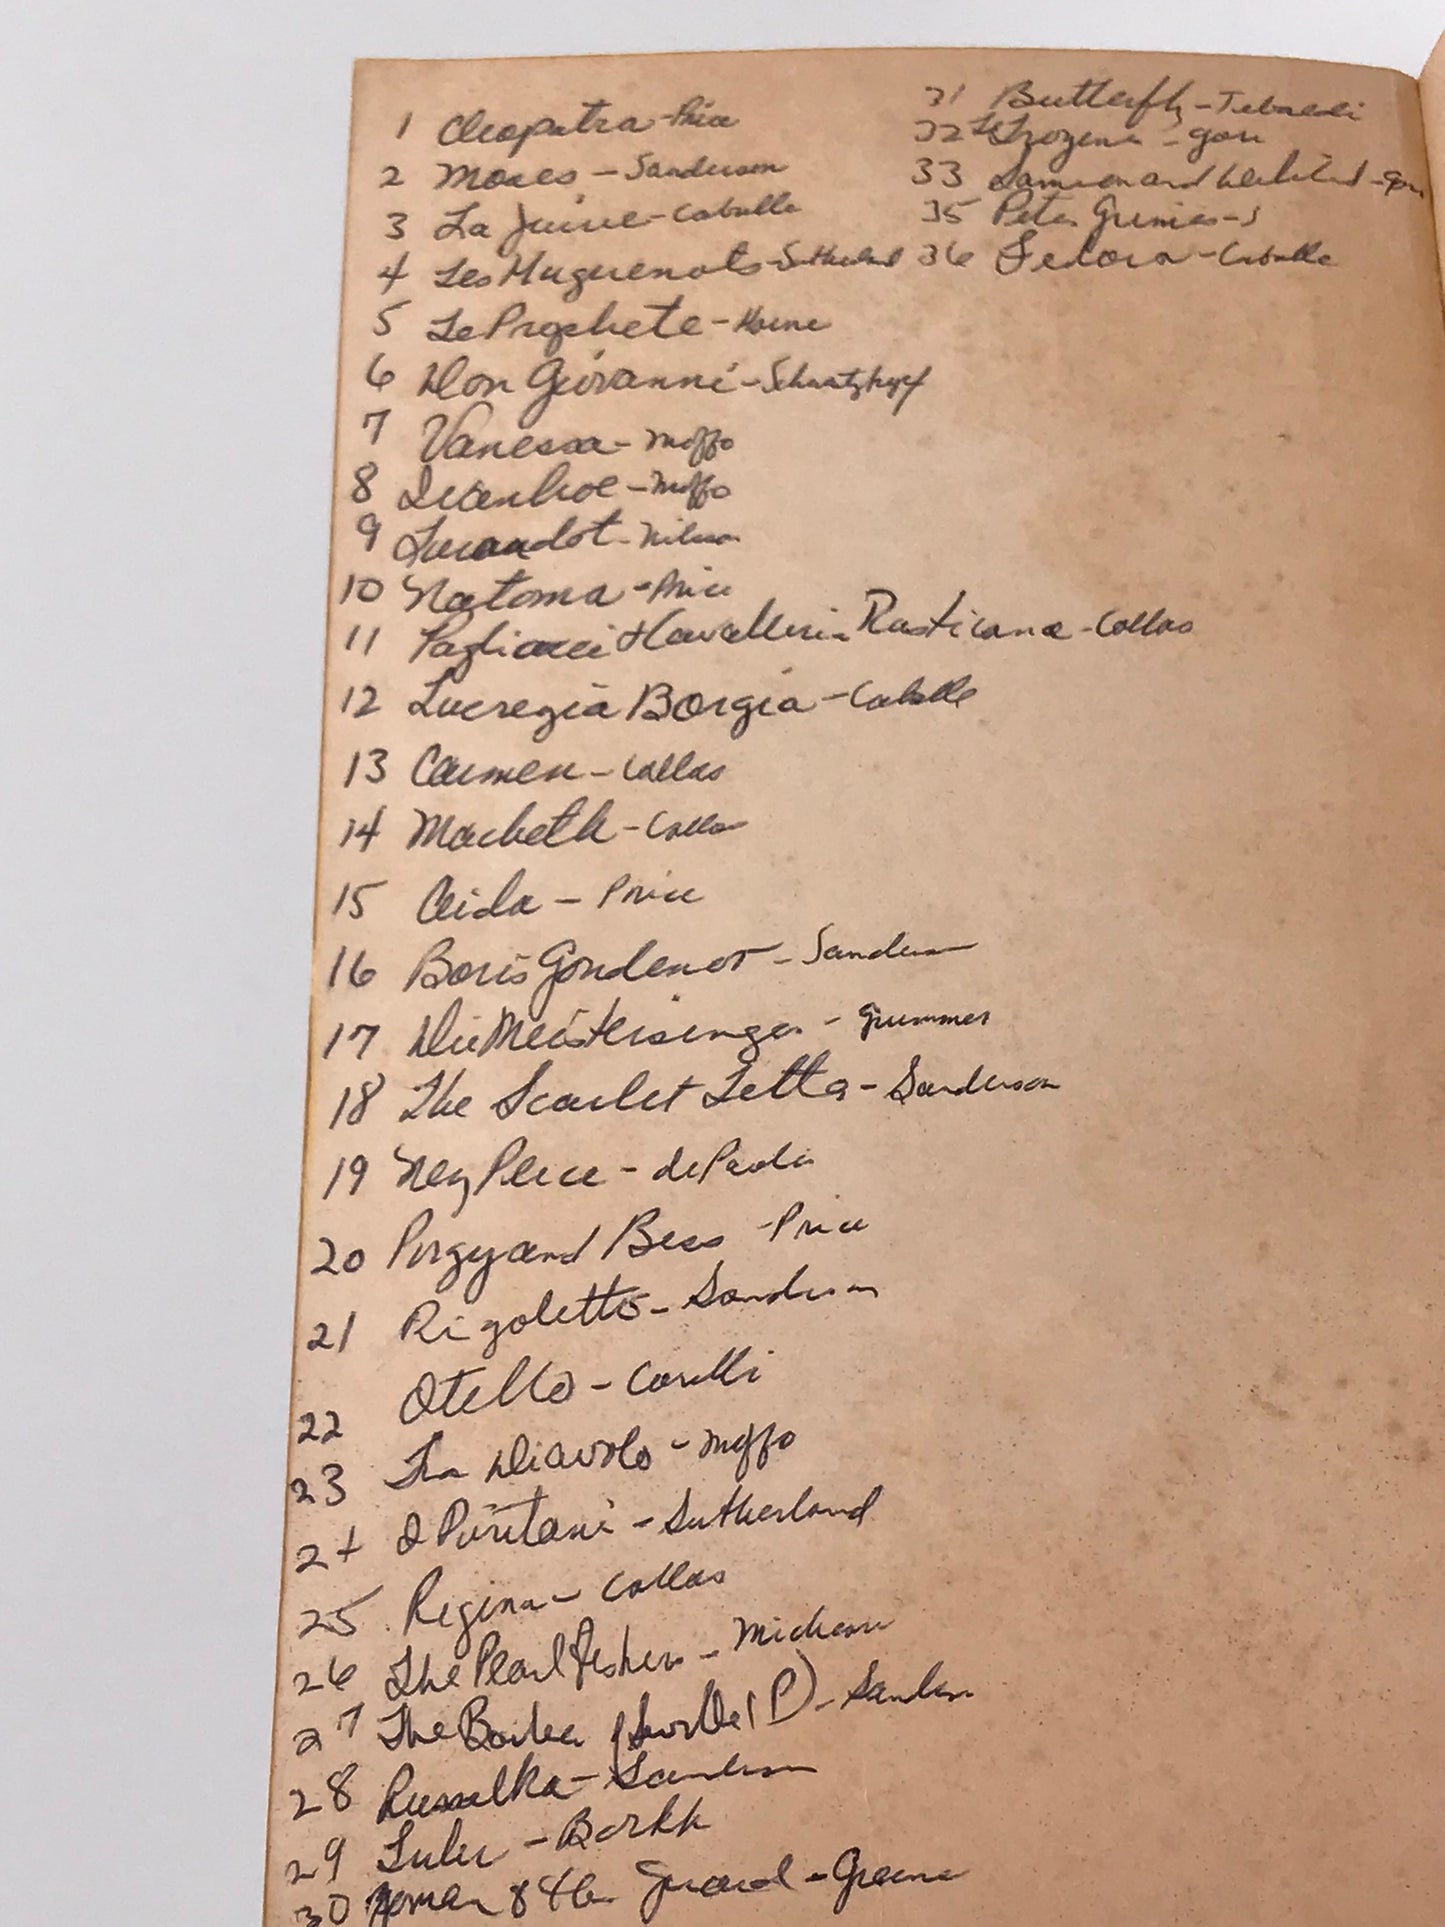 1 Cleopatra - Price
2 Moses - Sanderson
3 La Juive - Caballe
4 Les Huguenots - Sutherland
5 Le Prophete - Horne
6 Don Giovanni - Schwartzkopf
7 Vanessa - Moffo
8 Ivanhoe - Moffo
9 Turandot - Nilsson
10 Natoma - Price
11 Pagliacci + Cavalleria Rusticana - Callas
12 Lucrezia Borgia - Caballe
13 Carmen - Callas
14 Macbeth - Callas
15 Aida - Price
16 Boris Gondenov - Sanderson
17 Die Meistersinger - Grummer
18 The Scarlet Letter - Sanderson
19 Nez Perce - de Paola
20 Porgy and Bess - Price
21 Rigoletto - Sanderson
22 Otello - Corelli
23 Fra Diavolo - Moffo
24 I Puritani - Sutherland
25 Regina - Callas
26 The Pearl Fishers - Micheau
27 The Barber (Seville (P) - Sanderson
28 Russalka - Sanderson
29 Lulu - Borkh
30 Yeoman of the Guard - Greene
31 Butterfly - Tebaldi
32 - Gorr
33 Samson and Delilah - Gorr
35 Peter Grimes - S
36 Fedora - Caballe